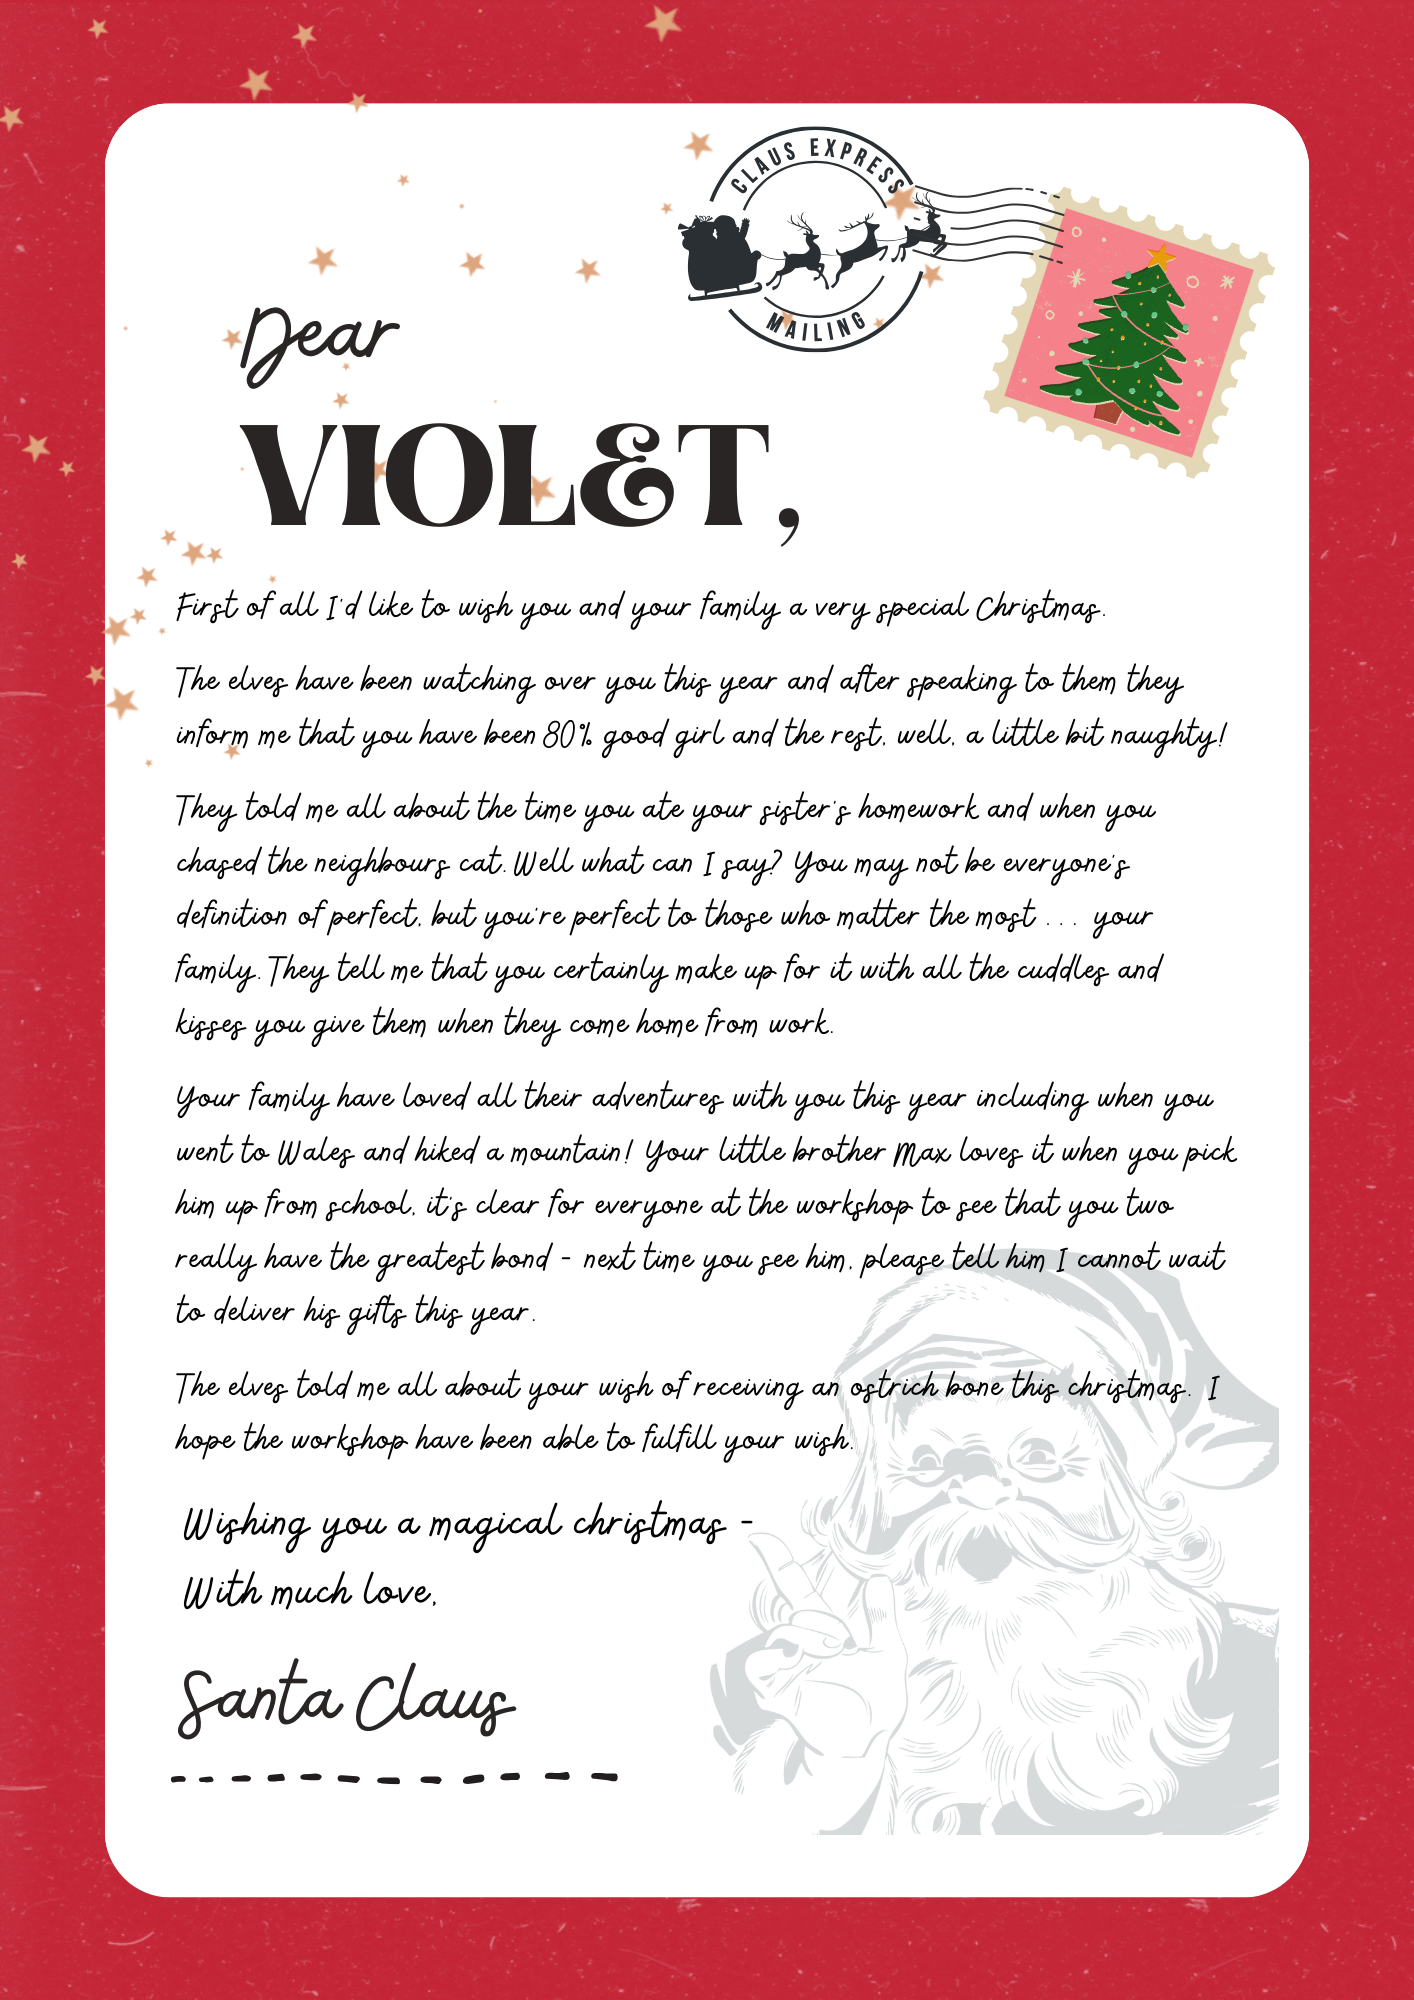 CLAUS EXPRESS
MAILING
Dear
VIOLET,
First of all I'd like to wish you and your family a very special Christmas.
The elves have been watching over you this year and after speaking to them they
inform me that you have been 80% good girl and the rest, well, a little bit naughty!
They told me all about the time you ate your sister's homework and when you
chased the neighbours cat. Well what can I say? You may not be everyone's
definition of perfect, but you're perfect to those who matter the most ... your
family. They tell me that you certainly make up for it with all the cuddles and
kisses you give them when they come home from work.
Your family have loved all their adventures with you this year including when you
went to Wales and hiked a mountain! Your little brother Max loves it when you pick
him up from school, it's clear for everyone at the workshop to see that you two
really have the greatest bond - next time you see him, please tell him I cannot wait
to deliver his gifts this year.
The elves told me all about your wish of receiving an ostrich bone this christmas. I
hope the workshop have been able to fulfill your wish.
Wishing you a magical christmas -
With much love,
Santa Claus